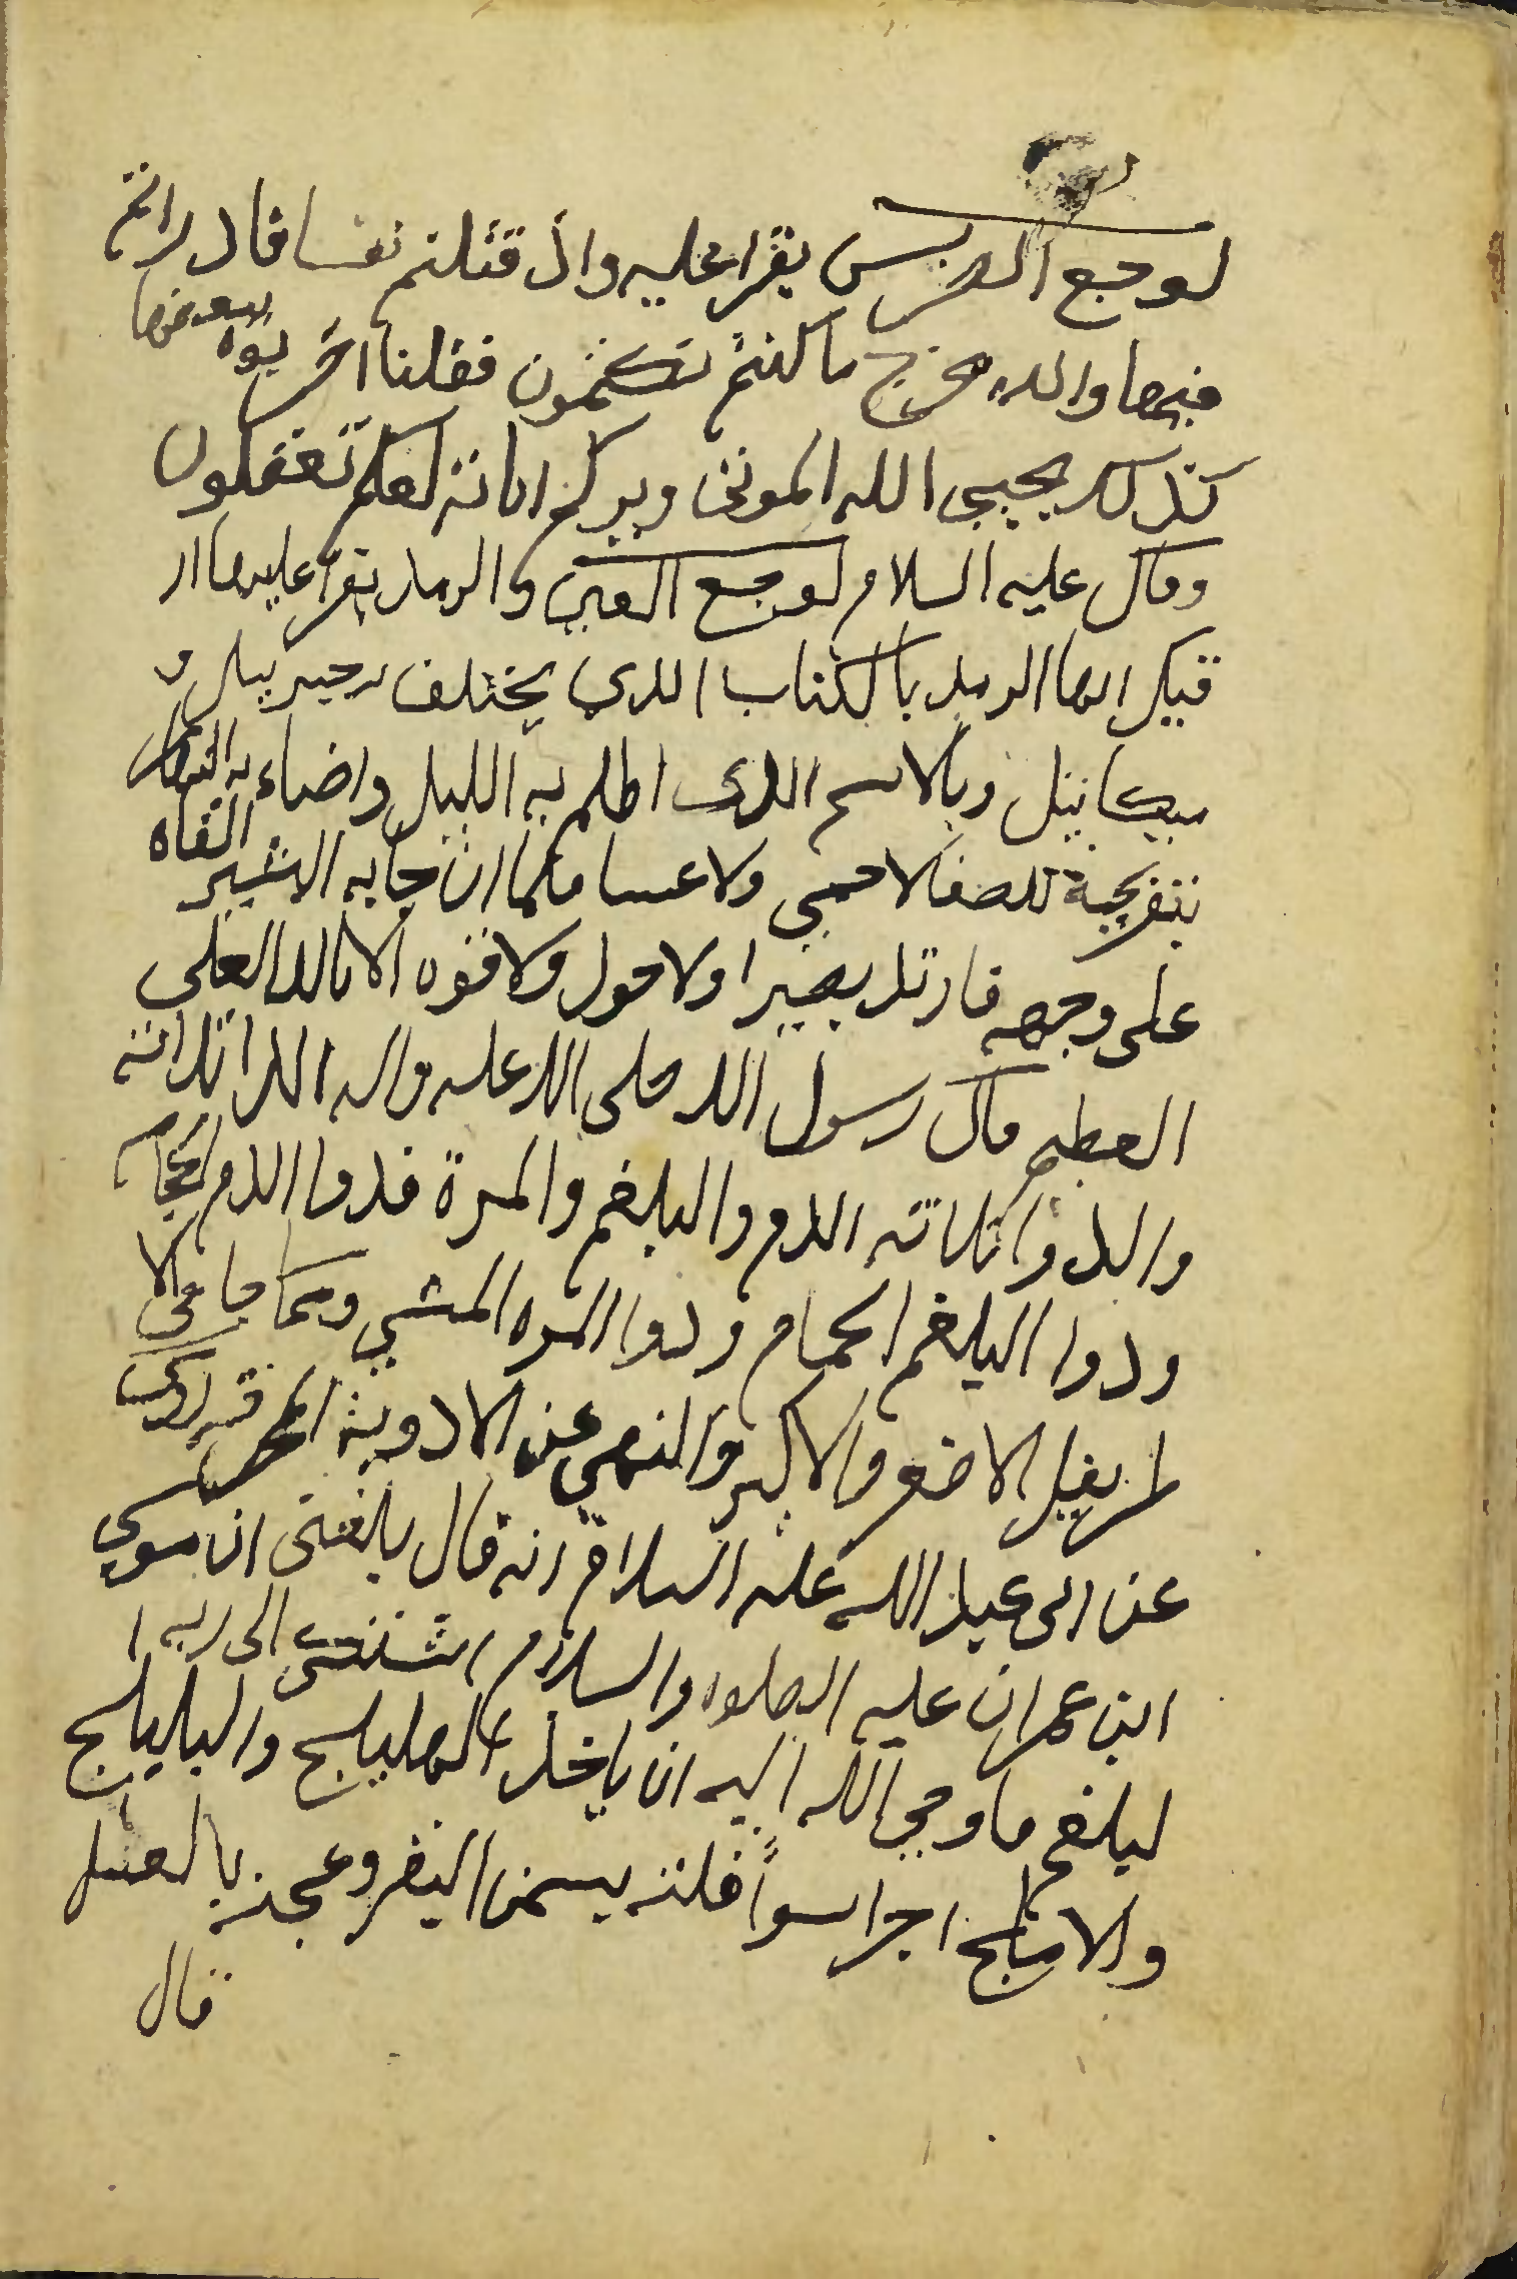 لوجع الضرس يقرا عليه واذ قتلتم نفسا فادراتم
فيها والله مخرج ما كنتم تكتمون فقلنا اضربوه ببعضها
كذلك يحيي الله الموتى ويريكم اياته لعلكم تعقلون
وقال عليه السلام لوجع العين والرمد يقرا عليها ا
ايها الرمد بالكتاب الذي يختلف به جبريل و
ميكائيل وبالاسم الذي اظلم به الليل واضاء به النهار
ولا فلما ان جا به البشير القاه
على وجهه فارتد بصيرا ولا حول ولا قوه الا بالله العلي
العظيم قال رسول الله صلى الله عليه واله الدا ثلاثه
والدوا ثلاثه الدم والبلغم والمرة فدوا الدم الحجامه
ودوا البلغم الحمام ودوا المره المشي ومما جا في الا
طريفل الاصغر والاكبر والنهي عن الادوية المحرقه روى
عن ابي عبد الله عليه السلام انه قال بلغني ان موسى
ابن عمران عليه الصلوه والسلام اشتكى الى ربه ا
لبلغم فاوحي الله اليه ان ياخذ الهليلج والبليلج
والاملج اجزا سواً يسمن البقر وعجنه بالعسل
قال